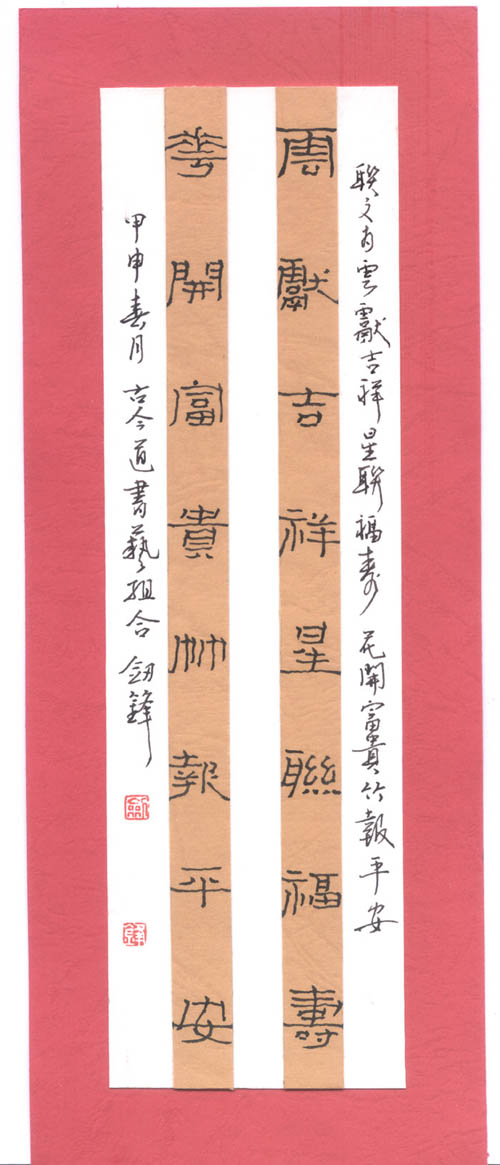 聯文曰雲獻吉祥星聯福壽 花開富貴竹報平安
雲獻吉祥星聯福壽
華開富貴竹報平安
甲申春月 古今道書藝組合 劍鋒
劍
鋒